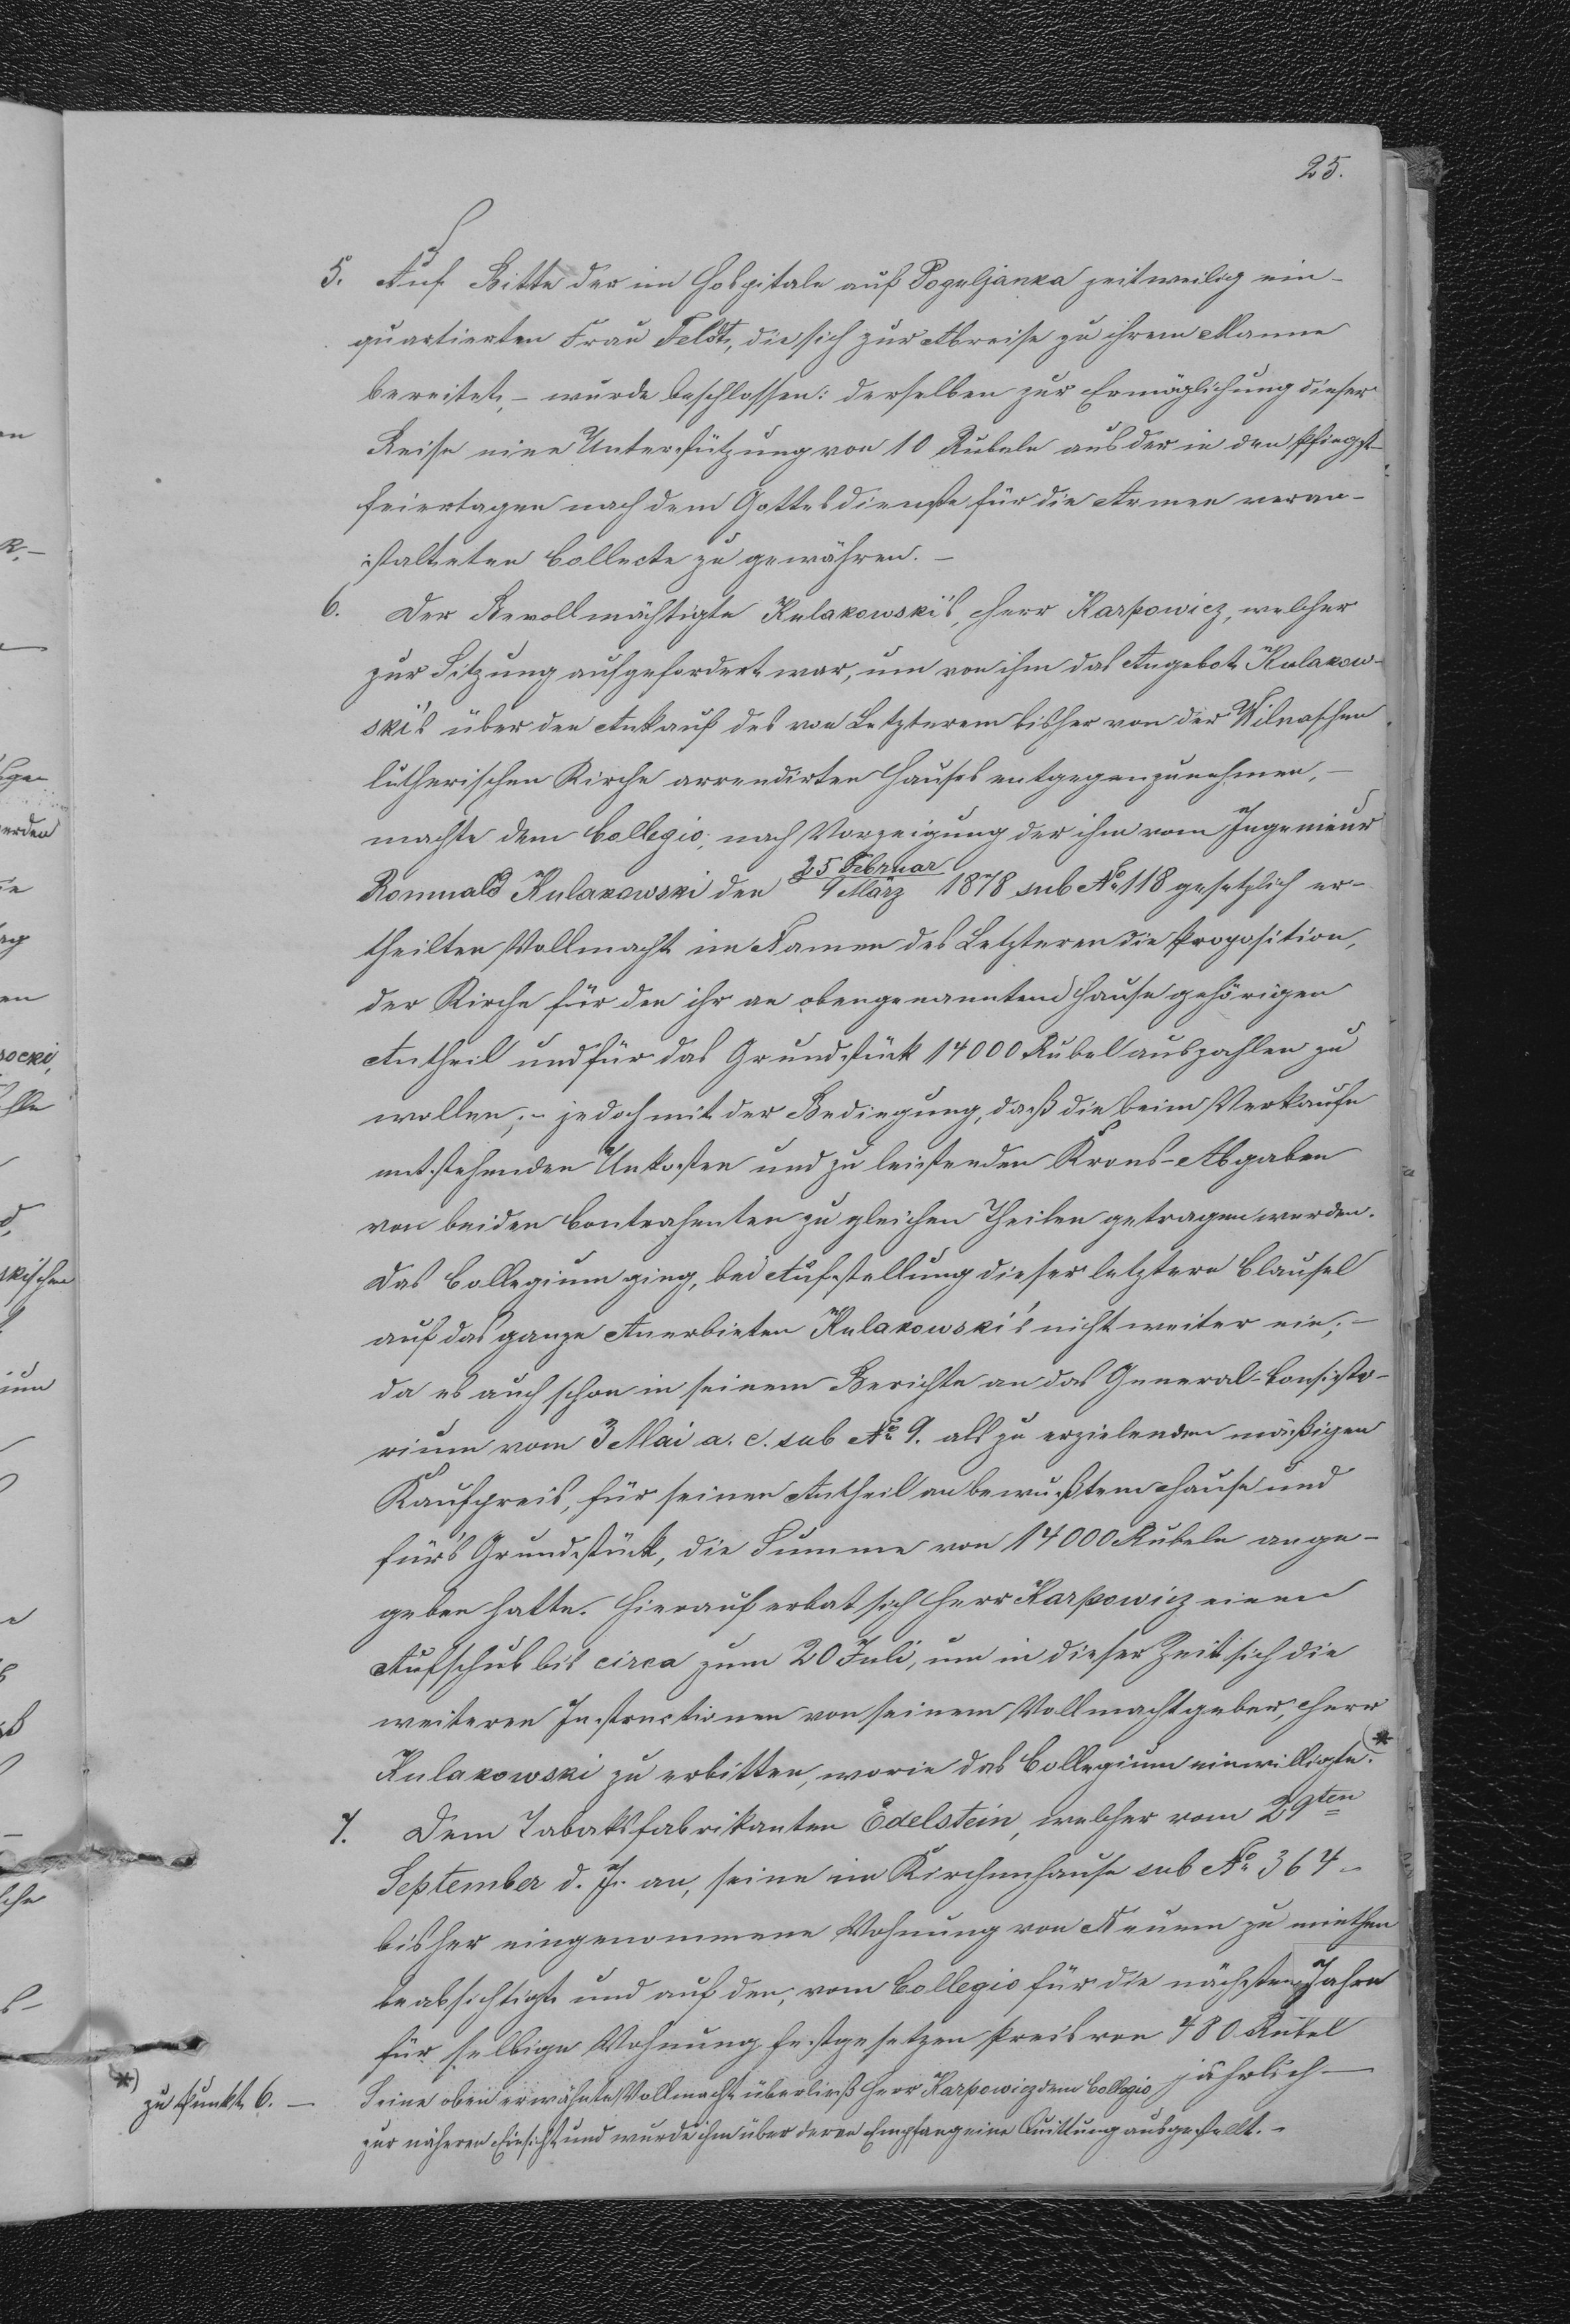 25.
5. Auf Bitte der im Hospitale auf Poguljanka zeitweilig ein-
quartierten Frau Feldt, die sich zur Abreise zu ihrem Manne
bereitet, – wurde beschlossen: derselben zur Ermöglichung dieser
Reise eine Unterstützung von 10 Rubeln aus der in den Pfingst-
feiertagen nach dem Gottesdienste für die Armen veran-
stalteten Collecte zu gewähren. –
6. Der Bevollmächtigte Kulakowski's, Herr Karpowicz, welcher
zur Sitzung aufgefordert war, um von ihm das Angebot Kulakow-
ski's über den Ankauf des von Letzterem bisher von der Wilnaschen
lutherischen Kirche arrendirten Hauses entgegenzunehmen, –
machte dem Collegio, nach Vorzeigung der ihm vom Ingenieur
Romuald Kulakowski den 25 Februar / 9 März 1878 sub № 118 gesetzlich er-
theilten Vollmacht im Namen des Letzteren die Proposition,
der Kirche für den ihr an obengenanntem Hause gehörigen
Antheil und für das Grundstück 14000 Rubel auszahlen zu
wollen; – jedoch mit der Bedingung, daß die beim Verkaufe
entstehenden Unkosten und zu leistenden Krons-Abgaben
von beiden Contrahenten zu gleichen Theilen getragen werden.
Das Collegium ging, bei Aufstellung dieser letztern Clausel
auf das ganze Anerbieten Kulakowski's nicht weiter ein; –
da es auch schon in seinem Berichte an das General-Consisto-
rium vom 3 Mai a. c. sub № 9. als zu erzielenden mäßigen
Kaufpreis, für seinen Antheil an bewußtem Hause und
für's Grundstück, die Summe von 14000 Rubeln ange-
geben hatte. Hierauf erbat sich Herr Karpowicz einen
Aufschub bis circa zum 20 Juli, um in dieser Zeit sich die
weiteren Instructionen von seinem Vollmachtgeber, Herr
Kulakowski zu erbitten, worin das Collegium einwilligte. *)
7. Dem Tabaksfabrikanten Edelstein, welcher vom 29ten
September d. J. an, seine im Kirchenhause sub № 364 –
bisher eingenommene Wohnung von Neuem zu miethen
beabsichtigt und auf den, vom Collegio für die nächsten Jahre
für selbige Wohnung festgesetzen Preis von 480 Rubel
jährlich –
*) zu Punkt 6. – Seine oben erwähnte Vollmacht überließ Herr Karpowicz dem Collegio
zur näheren Einsicht und wurde ihm über deren Empfang eine Quittung ausgestellt. –